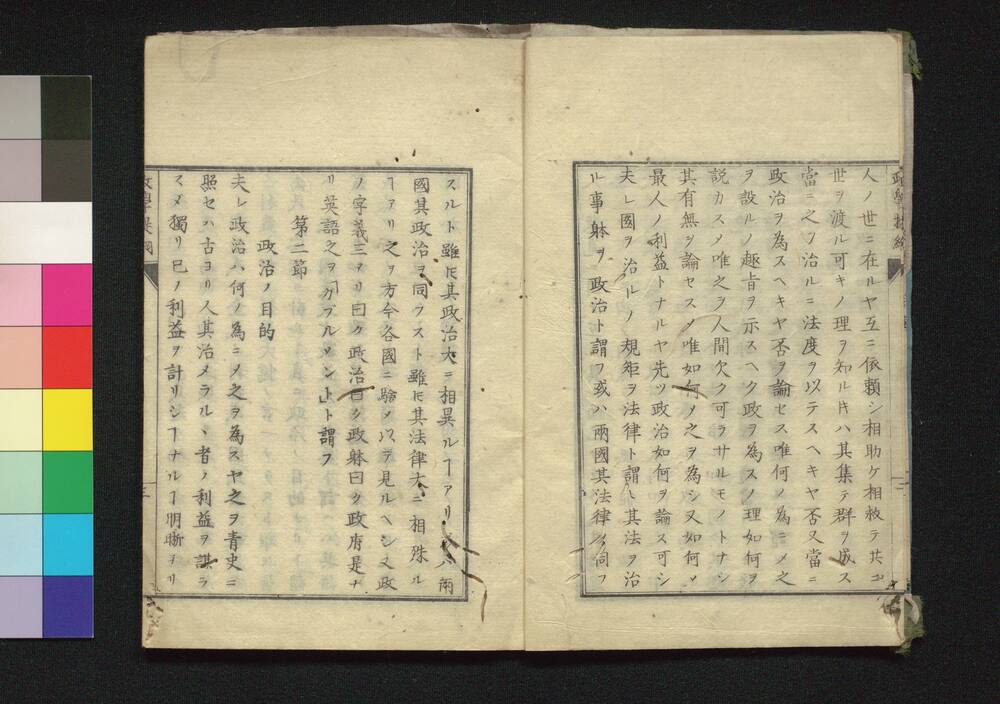 人ノ世ニ在ルヤ互ニ依頼シ相助ケ相救テ共ニ
世ヲ渡ル可キノ理ヲ知ルㇳキハ其集テ群ヲ成ス
當ニ之ヲ治ルニ法度ヲ以テスヘキヤ否又當ニ
政治ヲ為スヘキヤ否ヲ論セス唯何ノ為ニ〆之
ヲ設ルノ趣旨ヲ示スヘク政ヲ為スノ理如何ヲ
説カス〆唯之ヲ人間欠ク可ラサルモノトナシ
其有無ヲ論セス〆唯如何〆之ヲ為シ又如何〆
最人ノ利益トナルヤ先ツ政治如何ヲ論ス可シ
夫レ國ヲ治ルノ規矩ヲ法律ト謂ヒ其法ヲ治
ル事躰ヲ政治ト謂フ或ハ兩國其法律ヲ同フ
スルト雖𪜈其政治大ニ相異ルヿアリ或ハ兩
國其政治ヲ同フスト雖𪜈其法律大ニ相殊ル
ヿアリ之ヲ方今各國ニ驗〆以テ見ルヘシ又政
ノ字義三アリ曰ク政治曰ク政躰曰ク政府是ナ
リ英語之ヲ「ガブルメント」ト謂フ
第二節
政治ノ目的
夫レ政治ハ何ノ為ニ〆之ヲ為スヤ之ヲ青史ニ
照セハ古ヨリ人其治メラルヽ者ノ利益ヲ謀ラ
ス〆獨リ己ノ利益ヲ計リシヿナルヿ明晰ナリ